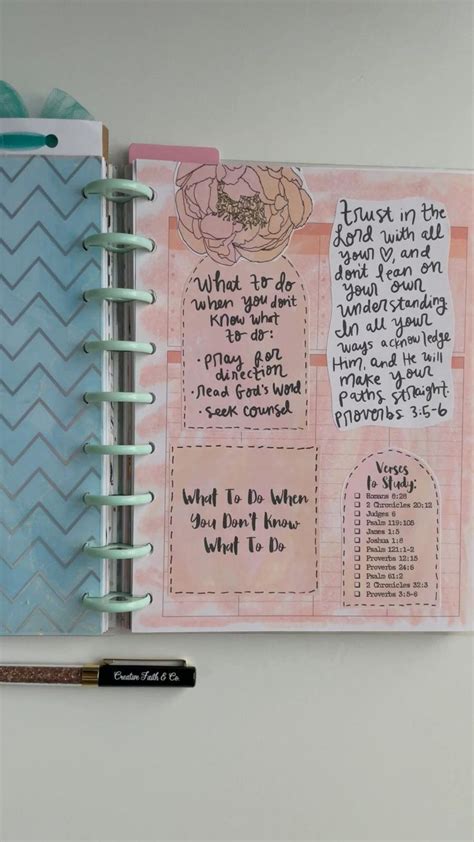 What to do
when you don't
know what
to do:
• pray for
direction
• read God's Word
• seek counsel
trust in the
Lord with all
your ♡, and
don't lean on
your own
understanding.
In all your
ways acknowledge
Him, and He will
make your
paths straight.
Proverbs 3:5-6
What To Do When
You Don't Know
What To Do
Verses
to Study:
Romans 8:28
2 Chronicles 20:12
Judges 6
Psalm 119:105
James 1:5
Joshua 1:8
Psalm 121:1-2
Proverbs 12:15
Proverbs 3:5
Psalm 61:2
2 Chronicles 32:3
Proverbs 3:5-6
Creative Faith & Co.